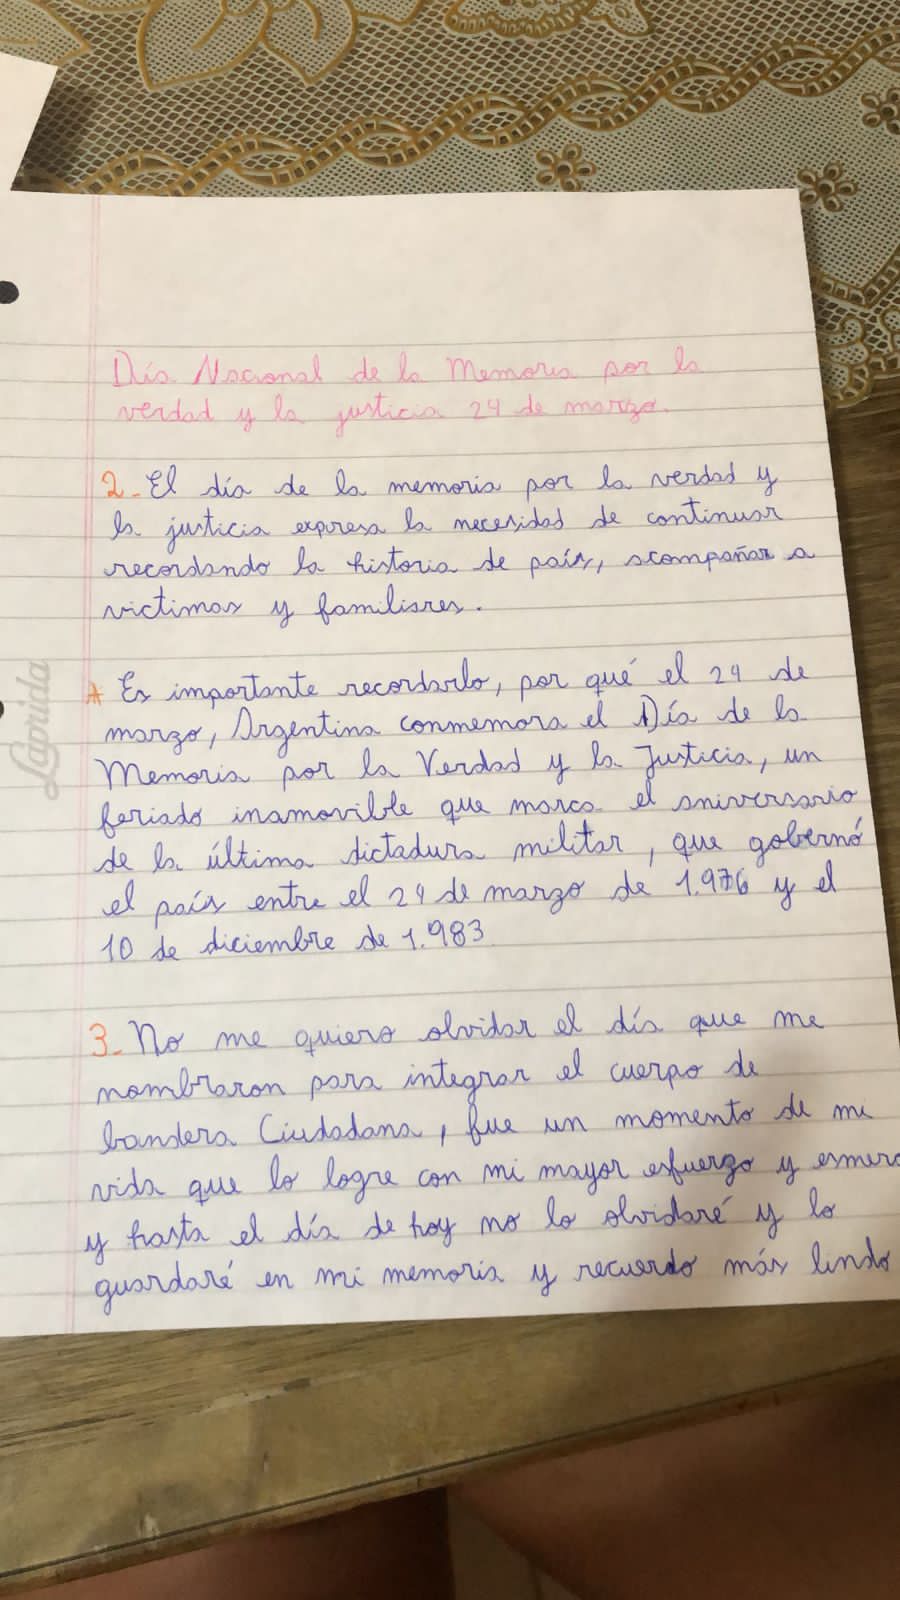 Día Nacional de la Memoria por la
verdad y la justicia 24 de marzo.
2. El día de la memoria por la verdad y
la justicia expresa la necesidad de continuar
recordando la historia de país, acompañar a
victimas y familiares.
* Es importante recordarlo, por qué el 24 de
marzo, Argentina conmemora el Día de la
Memoria por la Verdad y la Justicia, un
feriado inamovible que marca el aniversario
de la última dictadura militar, que gobernó
el país entre el 24 de marzo de 1.976 y el
10 de diciembre de 1.983
3. No me quiero olvidar el día que me
nombraron para integrar el cuerpo de
bandera Ciudadana, fue un momento de mi
vida que lo logre con mi mayor esfuerzo y esmero
y hasta el día de hoy no lo olvidaré y lo
guardaré en mi memoria y recuerdo más lindo
Laprida